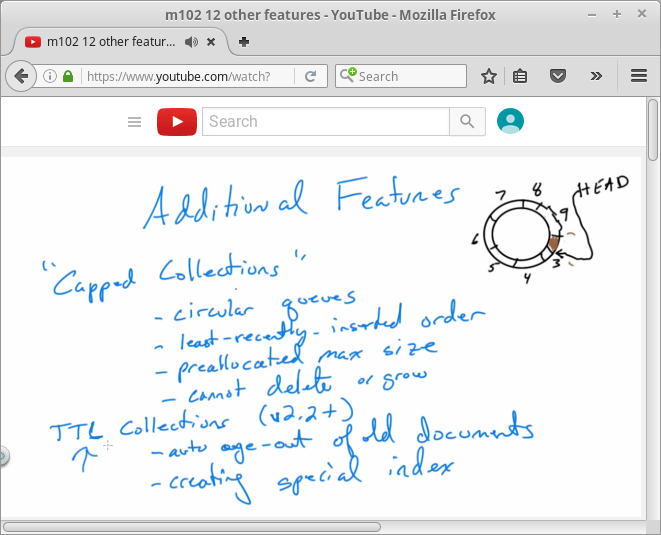 m102 12 other features - YouTube - Mozilla Firefox
m102 12 other featur...
https://www.youtube.com/watch?
Search
Search
Additional Features
7 8 9 HEAD
6
5 4 3
"Capped Collections"
- circular queues
- least-recently-inserted order
- preallocated max size
- cannot delete or grow
TTL Collections (v2.2+)
- auto age-out of old documents
- creating special index